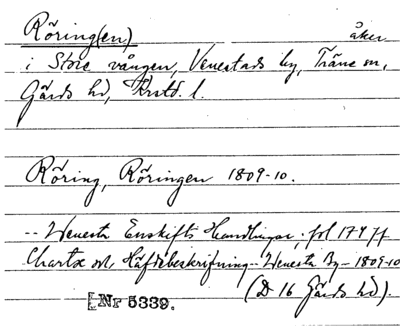 Röring(en) åker
i Store vången, Venestads by, Träne sn,
Gärds hd, Krstd. l.
Röring, Röringen 1809-10.
-- Wenesta Enskifts Handlingar. fol 177 ff
Charta och Häfdebeskrifning Wenesta By - 1809-10
(D 16 Gärds hd).
Nr 5339.